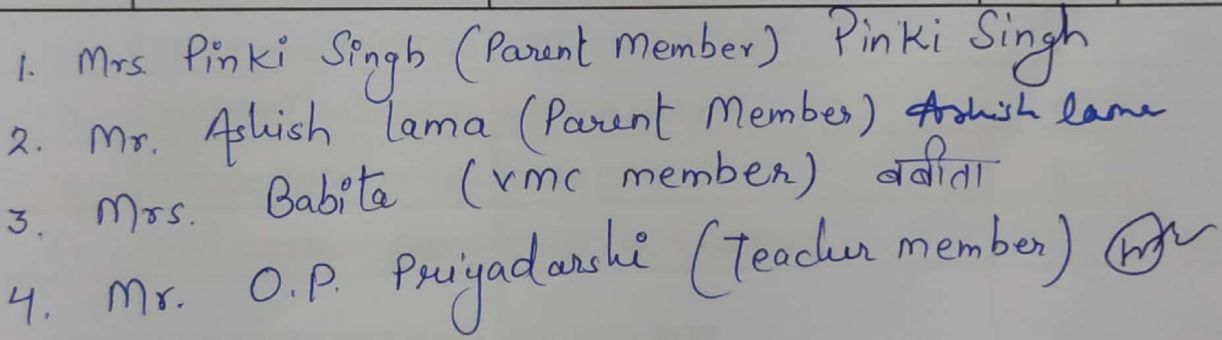 1. Mrs. Pinki Singh (Parent Member) Pinki Singh
2. Mr. Ashish Lama (Parent Member) Ashish lama
3. Mrs. Babita (VMC member) बबीता
4. Mr. O.P. Priyadarshi (Teacher member)